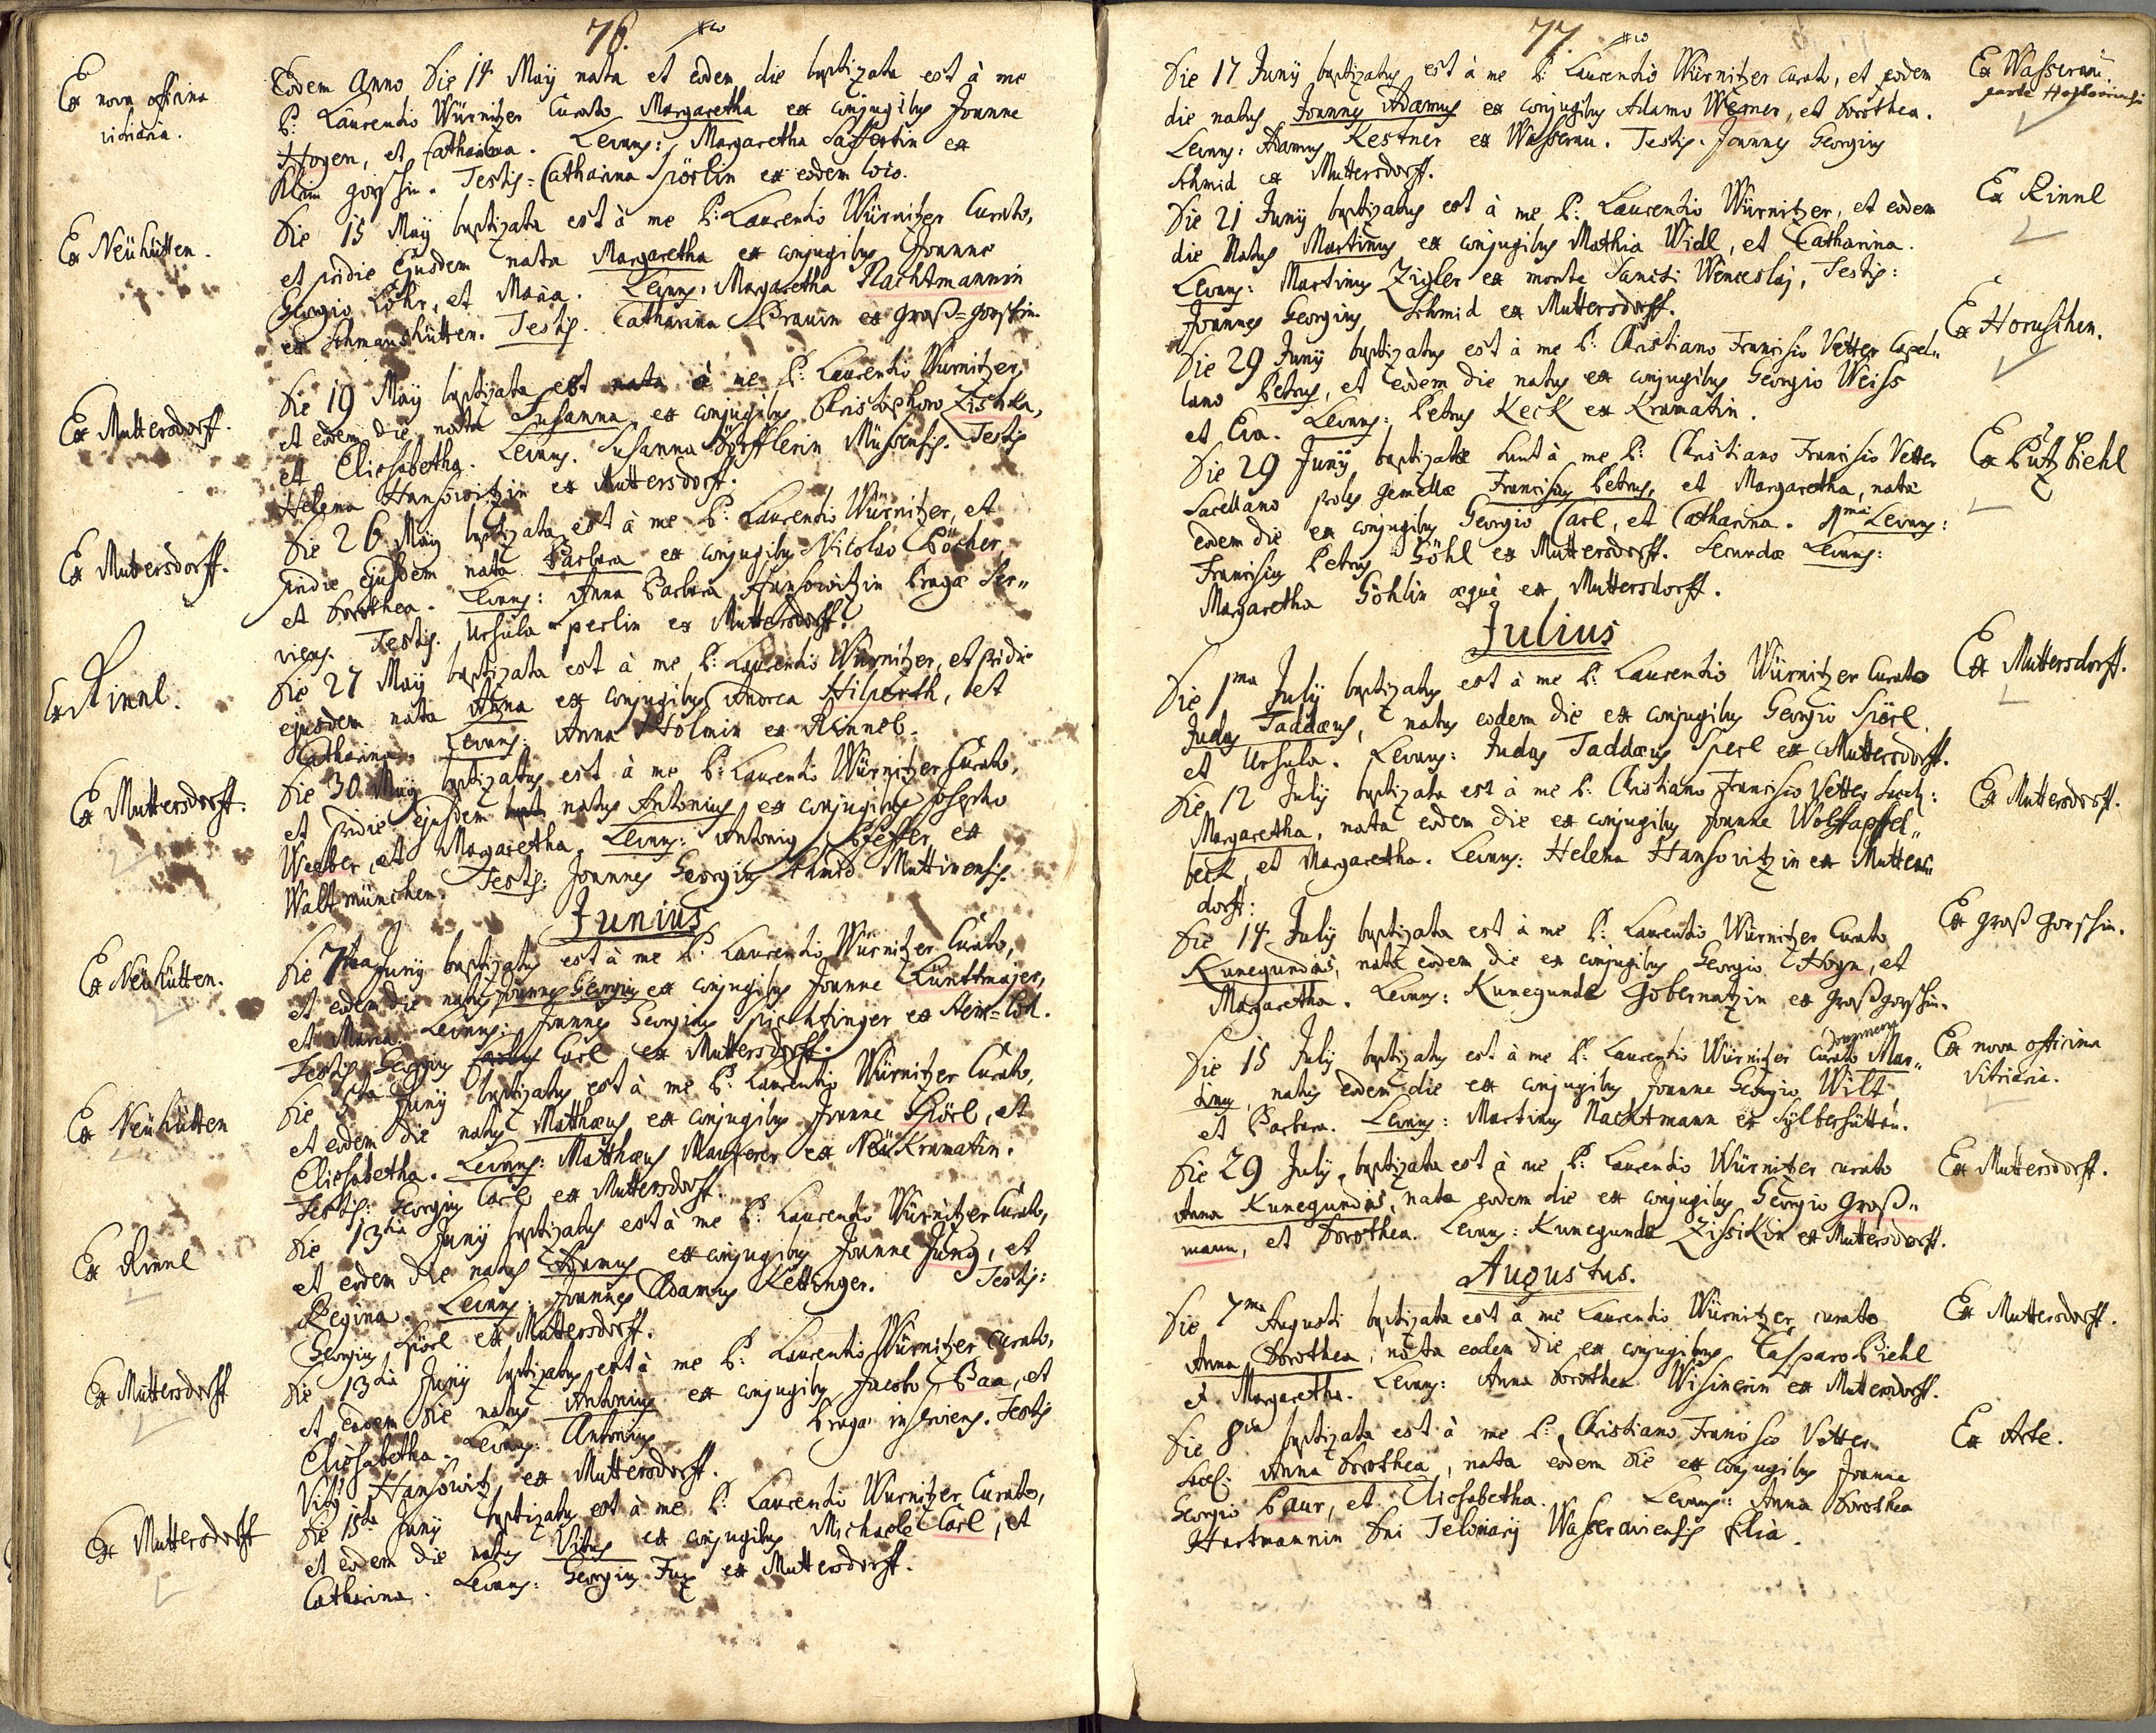 76.
Ex nova officina
vitriaria.
Eodem Anno Die 14 Maÿ nata et eodem die baptizata est à me
P: Laurentio Würnitzer Curato Margaretha ex conjugibus Joanne
Hoyen, et Catharina. Levans: Margaretha Saffertin ex
Klein gorschin. Testis: Catharina Spörlin ex eodem loco.
Ex Neühütten.
Die 15 Maÿ baptizata est à me P: Laurentio Würnitzer Curato,
et pridie Ejusdem nata Margaretha ex conjugibus Joanne
Georgio Löhr, et Maria. Levans: Margaretha Nachtmannin
ex Schmaushütten. Testis. Catharina Braũin ex groß=gorschin.
Ex Muttersdorff.
Die 19 Maÿ baptizata est nata à me P: Laurentio Würnitzer,
et eodem die nata Susanna ex conjugibus Christophoro Zischka,
et Elisabetha. Levans. Susanna Dörfflerin Müsensis. Testis
Helena Hansowitzin ex Muttersdorff.
Ex Muttersdorff.
Die 26 Maÿ baptizata est à me P: Laurentio Würnitzer, et
pridie ejusdem nata Barbara ex conjugibus Nicolao Böcher,
et Dorothea. Levans: Anna Barbara Hansowitzin Pragæ Ser„
viens. Testis. Ursula Sperlin ex Muttersdorff.
Ex Rinnl.
Die 27 Maÿ baptizata est à me P: Laurentio Würnitzer, et pridie
ejusdem nata Anna ex conjugibus Andrea Hilperth, et
Catharina. Levans: Anna Holmin ex Rinnel.
Ex Muttersdorff.
Die 30 Maÿ baptizatus est à me P: Laurentio Würnitzer Curato,
et pridie ejusdem natus Antonius ex conjugibus Josepho
Weeber, et Margaretha. Levans: Antonius Pfeffer ex
Waltmünchen. Testis: Joannes Georgius Schmid Muttinensis.
Junius
Ex Neühütten.
Die 7tia Junÿ baptizatus est à me P. Laurentio Würnitzer Curato,
et eodem die natus Joannes Georgius ex conjugibus Joanne Künttmajer,
et Maria. Levans: Joannes Georgius Spichtinger ex
Testis Georgius Carl ex Muttersdorff.
Ex Neühütten
Die 5ta Junÿ baptizatus est à me P: Laurentio Würnitzer Curato,
et eodem die natus Matthæus ex conjugibus Joanne Spörl, et
Elisabetha. Levans: Matthæus Maurerer ex Neü Kramatin.
Testis: Georgius Carl ex Muttersdorff.
Ex Rinnl
Die 13tia Junÿ baptizatus est à me P: Laurentio Würnitzer Curato,
et eodem die natus Adamus ex conjugibus Joanne Jung, et
Regina. Levans: Joannes Adamus Kettinger. Testis:
Georgius Spörl ex Muttersdorff.
Ex Muttersdorff
Die 13tia Junÿ baptizatus est à me P: Laurentio Würnitzer Curato,
et eodem die natus Antonius ex conjugibus Jacobo Baa, et
Elisabetha. Levans: Antonius Pragæ inserviens. Testis
Vitus Hansowitz ex Muttersdorff.
Ex Muttersdorff
Die 15ta Junÿ baptizatus est à me P: Laurentio Würnitzer Curato,
et eodem die natus Vitus ex conjugibus Michaele Carl, et
Catharina. Levans: Georgius Fux ex Muttersdorff.
77.
Ex Wasserau.
parte
Die 17 Junÿ baptizatus est à me P: Laurentio Würnitzer Curato, et eodem
die natus Joannes Adamus ex conjugibus Adamo Werner, et Dorothea.
Levans: Adamus Kestner ex Wasserau. Testis. Joannes Georgius
Schmid ex Muttersdorff.
Ex Rinnl
Die 21 Junÿ baptizatus est à me P: Laurentio Würnitzer, et eodem
die Natus Martinus ex conjugibus Mathia Widl, et Catharina.
Levans: Martinus Zigler ex monte Sancti Wenceslaj, Testis:
Joannes Georgius Schmid ex Muttersdorff.
Ex Horuschen.
Die 29 Junÿ baptizatus est à me P: Christiano Francisco Vetter Capel„
lano Petrus, et eodem die natus ex conjugibus Georgio Weiss
et Eva. Levans: Petrus Keck ex Kramatin.
Ex Putzbiehl
Die 29 Junÿ baptizatæ sunt à me P: Christiano Francisco Vetter
Sacellano proles gemellæ Franciscus Petrus, et Margaretha, natæ
eodem die ex conjugibus Georgio Carl, et Catharina. 1mæ Levans:
Franciscus Petrus Göhl ex Muttersdorff. Secundæ Levans:
Margaretha Göhlin æquè ex Muttersdorff.
Julius
Ex Muttersdorff.
Die 1ma Julÿ baptizatus est à me P: Laurentio Würnitzer Curato
Judas Taddæus, natus eodem die ex conjugibus Georgio Spörl
et Ursula. Levans: Judas Taddæus Sperl ex Muttersdorff.
Ex Muttersdorff.
Die 12 Julÿ baptizata est à me P: Christiano Francisco Vetter Sacell:
Margaretha, nata eodem die ex conjugibus Joanne Wolffapffel„
beck, et Margaretha. Levans: Helena Hansovitzin ex Mutters„
dorff:
Ex groß gorschin.
Die 14 Julÿ baptizata est à me P: Laurentio Würnitzer Curato
Kunegundis, nata eodem die ex conjugibus Georgio Hoyn, et
Margaretha. Levans: Kunegunda Gobernatzin ex großgorschin.
Ex nova officina
vitriaria.
Die 15 Julÿ baptizatus est à me P: Laurentio Würnitzer Curato Joannes Mar„
tinus, natus eodem die ex conjugibus Joanne Georgio Wilt,
et Barbara. Levans: Martinus Nachtmann ex Sylberhütten.
Ex Muttersdorff.
Die 29 Julÿ, baptizata est à me P: Laurentio Würnitzer curato
Anna Kunegundis, nata eodem die ex conjugibus Georgio Groß„
mann, et Dorothea. Levans: Kunegunda Zissikin ex Muttersdorff.
Augustus.
Ex Muttersdorff.
Die 7ma Augusti baptizata est à me Laurentio Würnitzer curato
Anna Dorothea, nata eodem die ex conjugibus Casparo Biehl
et Margaretha. Levans: Anna Dorothea Wisinerin ex Muttersdorff.
Ex Arte.
Die 8va baptizata est à me P: Christiano Francisco Vetter
Sacel: Anna Dorothea, nata eodem die ex conjugibus Joanne
Georgio Paur, et Elisabetha. Levans: Anna Dorothea
Hartmannin Dni Telonarÿ Wasseraviensis filia.